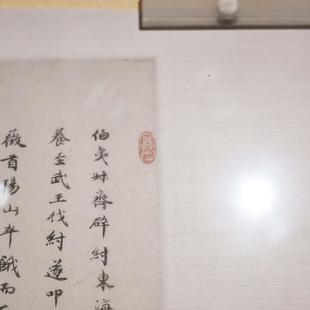 伯夷叔齊辟紂東海
養至武王伐紂遂叩
薇首陽山卒餓而